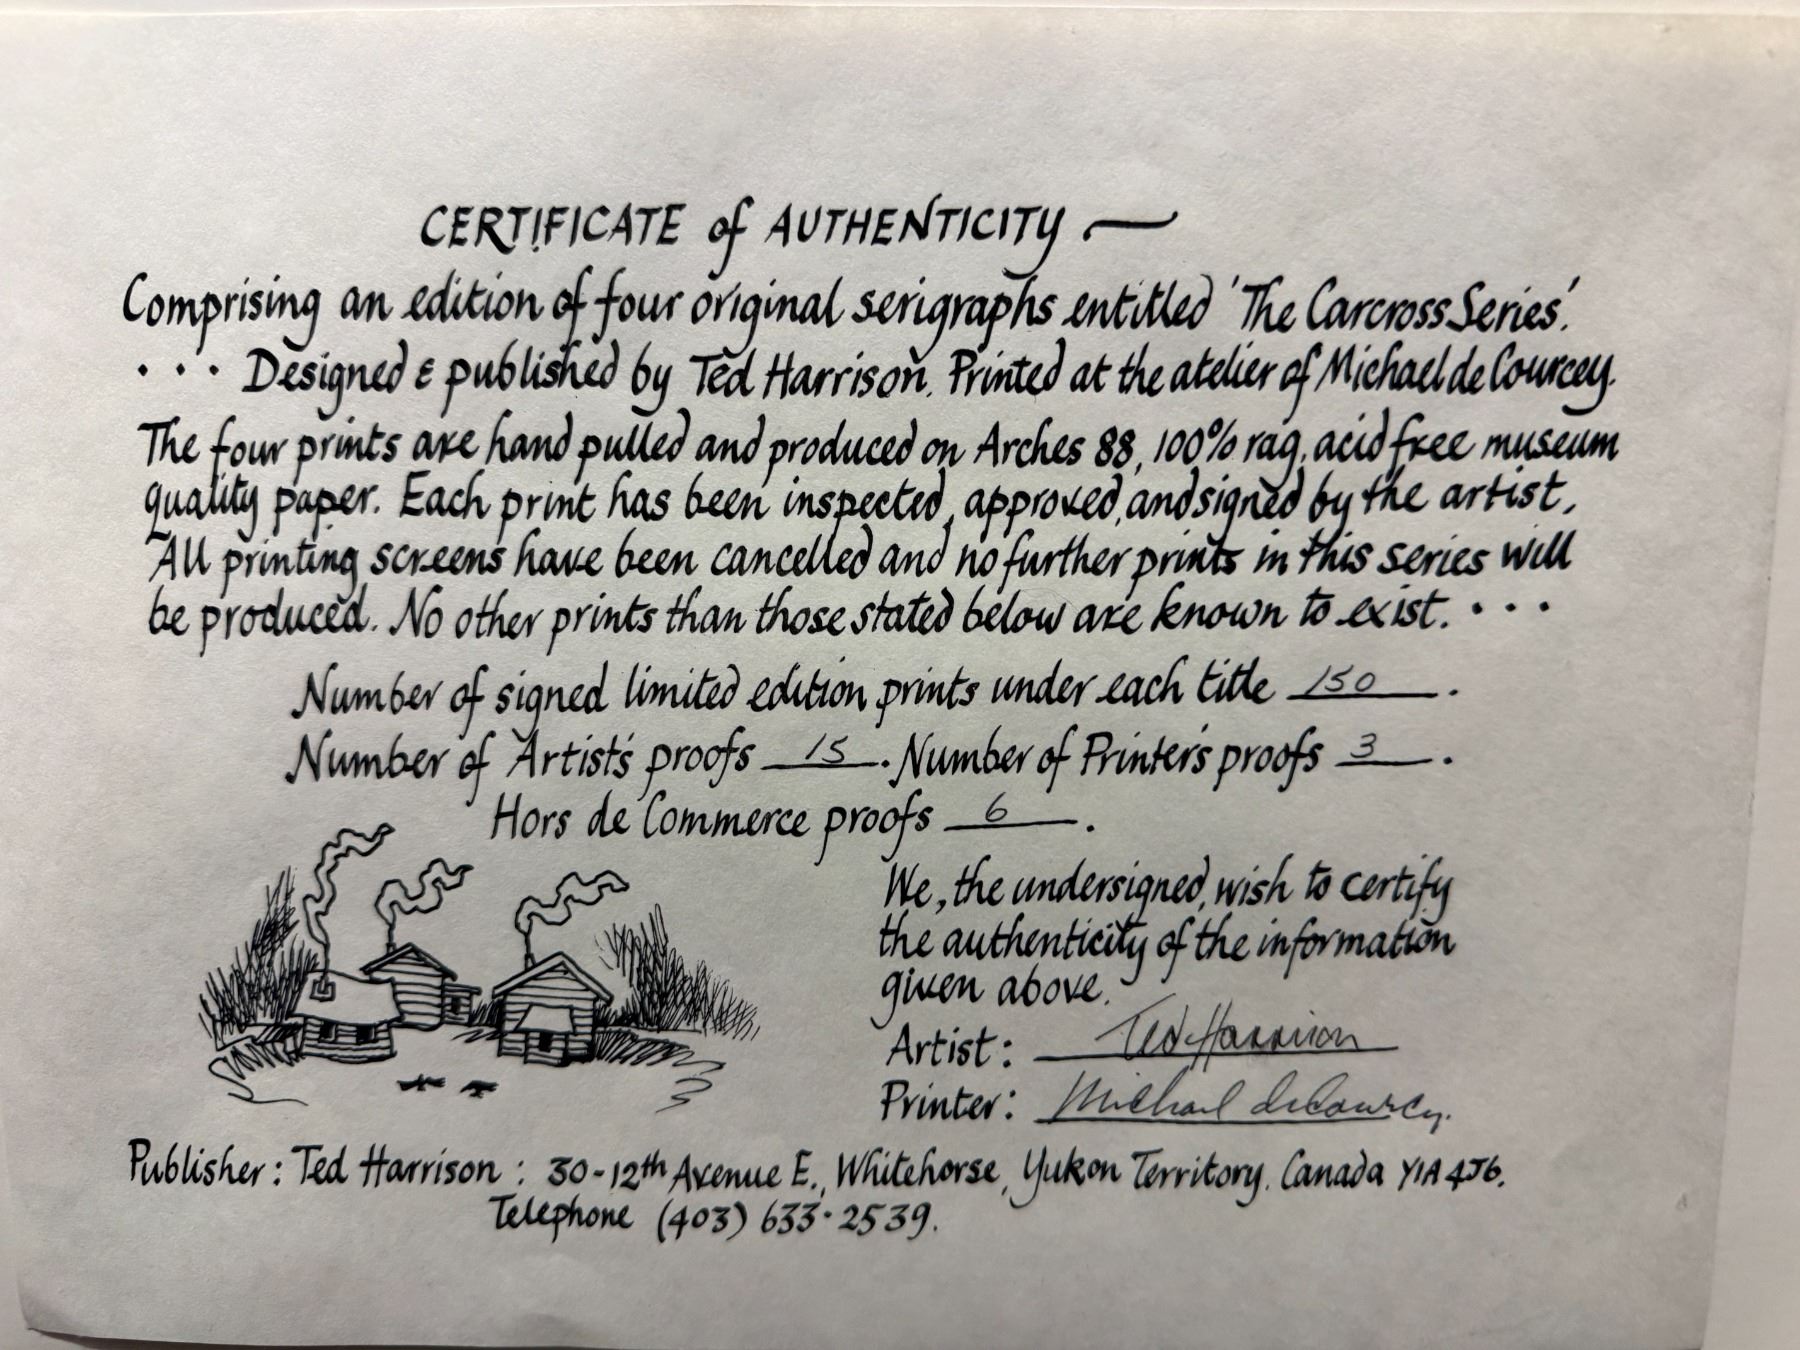 CERTIFICATE of AUTHENTICITY —
Comprising an edition of four original serigraphs entitled 'The Carcross Series'.
... Designed & published by Ted Harrison. Printed at the atelier of Michael de Courcey.
The four prints are hand pulled and produced on Arches 88, 100% rag, acid free museum
quality paper. Each print has been inspected, approved, and signed by the artist.
All printing screens have been cancelled and no further prints in this series will
be produced. No other prints than those stated below are known to exist. ...
Number of signed limited edition prints under each title 150.
Number of Artist's proofs 15. Number of Printer's proofs 3.
Hors de Commerce proofs 6.
We, the undersigned, wish to certify
the authenticity of the information
given above.
Artist: Ted Harrison
Printer: Michael deCourcy.
Publisher: Ted Harrison: 30-12th Avenue E., Whitehorse, Yukon Territory. Canada Y1A 4J6.
Telephone (403) 633·2539.